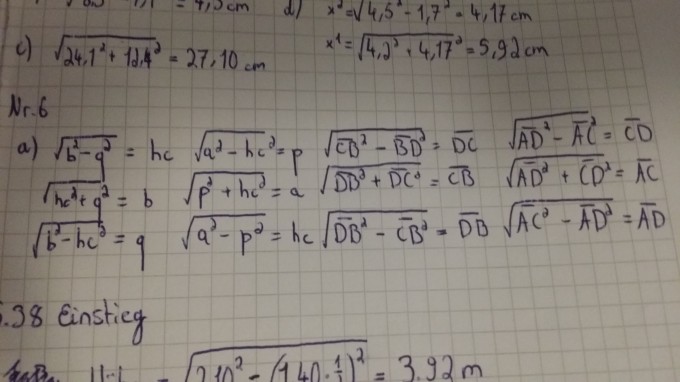 = 4,5 cm d) x²=√4,5² - 1,7² = 4,17 cm
c) √24,1² + 12,4² = 27,10 cm x¹=√4,2² + 4,17² = 5,92 cm
Nr. 6
a) √b² - q² = hc √a² - hc² = p √C̅B̅² - B̅D̅² = D̅C̅ √A̅D̅² - A̅C̅² = C̅D̅
√hc² + q² = b √p² + hc² = a √D̅B̅² + D̅C̅² = C̅B̅ √A̅D̅² + C̅D̅² = A̅C̅
√b² - hc² = q √a² - p² = hc √D̅B̅² - C̅B̅² = D̅B̅ √A̅C̅² - A̅D̅² = A̅D̅
.38 Einstieg
= 3,92 m